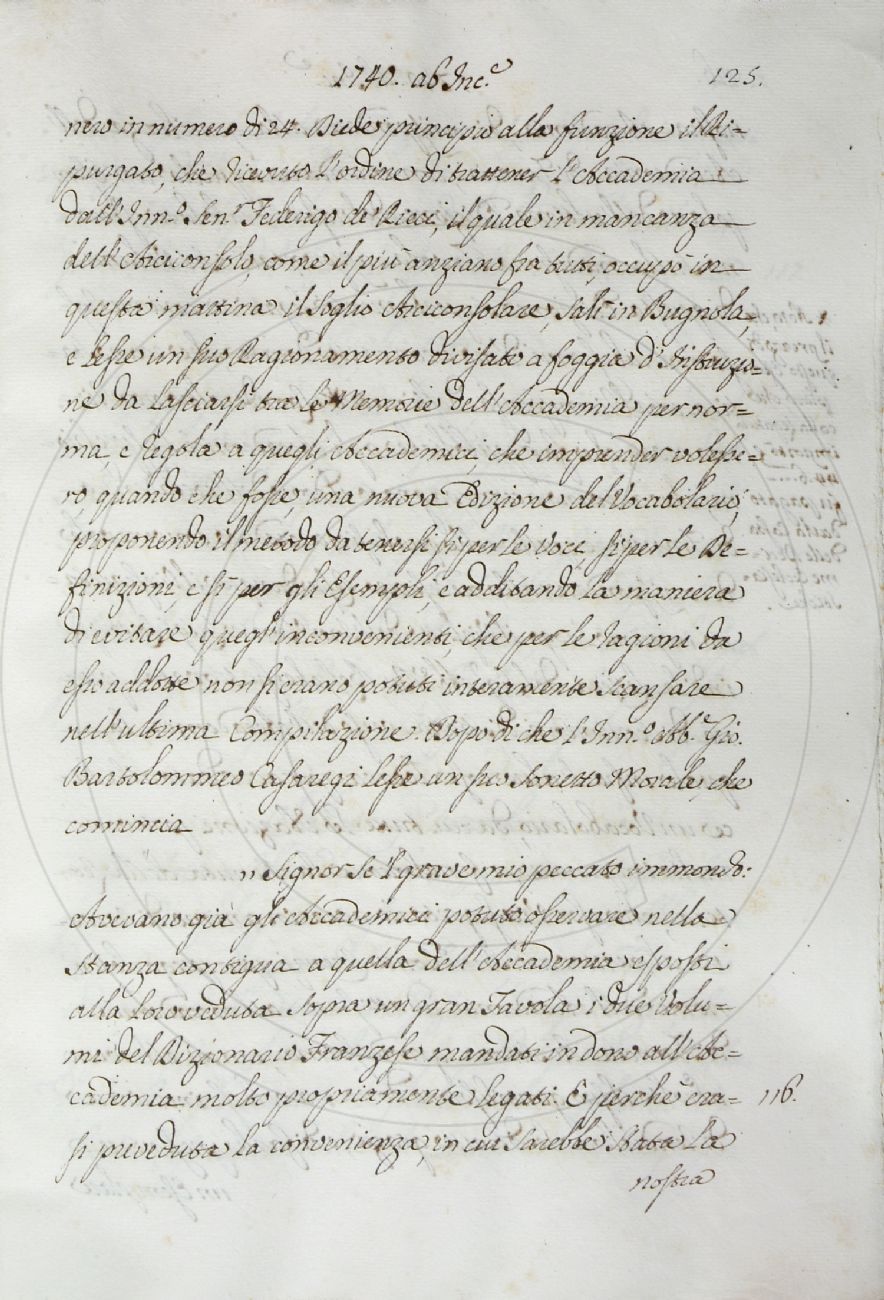 1740. ab Inc.e
125.
nero in numero di 24. Diede principio alla funzione il Ri=
purgato, che ricevuto l'ordine di trattener l'Accademia
dall'Inn.o Sen.r Federigo de Ricci, il quale in mancanza
dell'Arciconsolo, come il più anziano fra tutti, occupò in
questa mattina il soglio Arciconsolare, salì in Bugnola,
e lesse un suo Ragionamento divisato a foggia d'Istruzio=
ne da lasciarsi tra le Memorie dell'Accademia per nor=
ma, e regola a quegli Accademici, che imprender volesse=
ro quando che fosse, una nuova Edizione del Vocabolario,
proponendo il metodo da tenersi sì per le Voci, sì per le De=
finizioni, e sì per gli Esempli, e additando la maniera
di evitare quegl'inconvenienti, che per le ragioni da
esso addotte non si erano potuti interamente scansare
nell'ultima Compilazione. Dopo di che l'Inn.o Abb.e Gio.
Bartolommeo Casaregi lesse un suo Sonetto Morale, che
comincia
" Signor se 'l grave mio peccato immondo:
Avevano già gli Accademici potuto osservare nella
Stanza contigua a quella dell'Accademia esposti
alla loro veduta sopra un gran Tavola i due Volu=
mi del Dizionario Franzese mandati in dono all'Ac=
cademia molto propriamente legati. E perchè era= 116.
si preveduta la convenienza, in cui sarebbe stata la
nostra